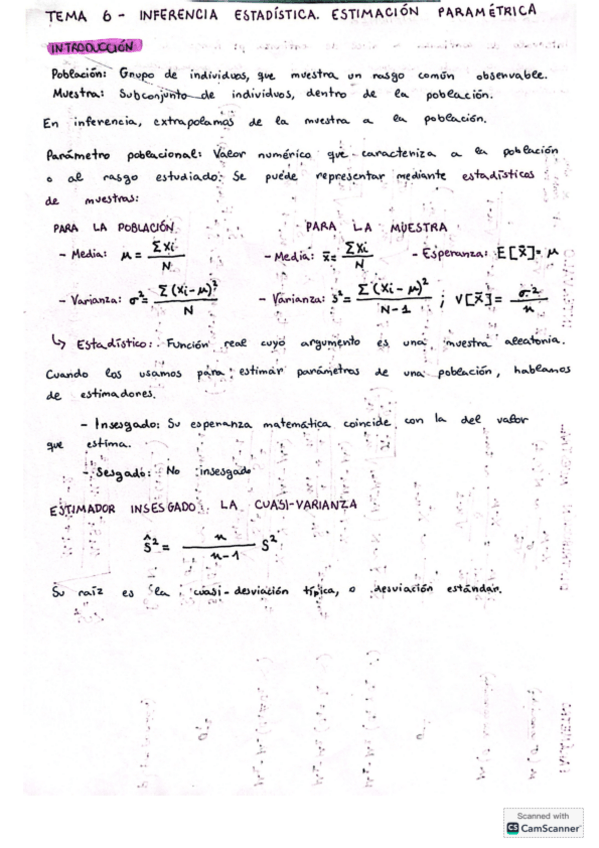 TEMA 6 - INFERENCIA ESTADÍSTICA. ESTIMACIÓN PARAMÉTRICA
INTRODUCCIÓN
Población: Grupo de individuos, que muestra un rasgo común observable.
Muestra: Subconjunto de individuos, dentro de la población.
En inferencia, extrapolamos de la muestra a la población.
Parámetro poblacional: Valor numérico que caracteriza a la población
o al rasgo estudiado. Se puede representar mediante estadísticos
de muestras:
PARA LA POBLACIÓN PARA LA MUESTRA
- Media: μ = Σxi / N - Media: x̄ = Σxi / N - Esperanza: E[X̄] = μ
- Varianza: σ² = Σ(xi - μ)² / N - Varianza: s² = Σ(xi - μ)² / N-1 ; V[X̄] = σ² / n
↳ Estadístico: Función real cuyo argumento es una muestra aleatoria.
Cuando los usamos para estimar parámetros de una población, hablamos
de estimadores.
- Insesgado: Su esperanza matemática coincide con la del valor
que estima.
- Sesgado: No insesgado
ESTIMADOR INSESGADO. LA CUASI-VARIANZA
Ŝ² = n / n-1 S²
Su raíz es la cuasi-desviación típica, o desviación estándar.
Scanned with
CS CamScanner